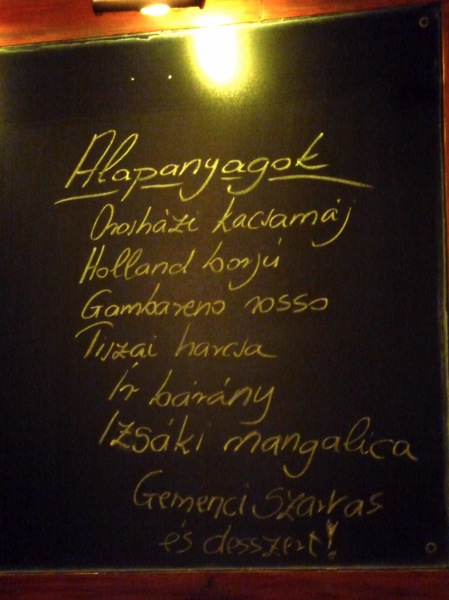 Alapanyagok
Orosházi kacsamáj
Holland borjú
Gambareno rosso
Tiszai harcsa
Ír bárány
Izsáki mangalica
Gemenci szarvas
és desszert!